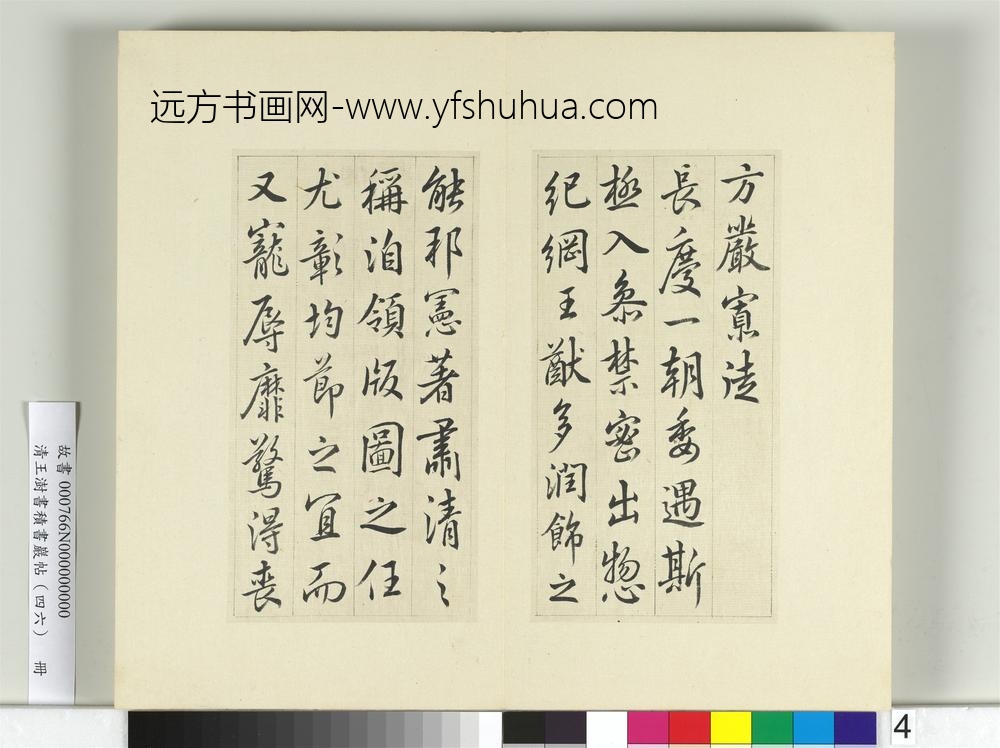 远方书画网-www.yfshuhua.com
方嚴寡徒
長慶一朝委遇斯
極入參禁密出惣
紀綱王猷多潤飾之
能邦憲著肅清之
稱洎領版圖之任
尤彰均節之宜而
又寵辱靡驚得喪
故書 000766N000000000
清王澍書積書巖帖（四六） 冊
4